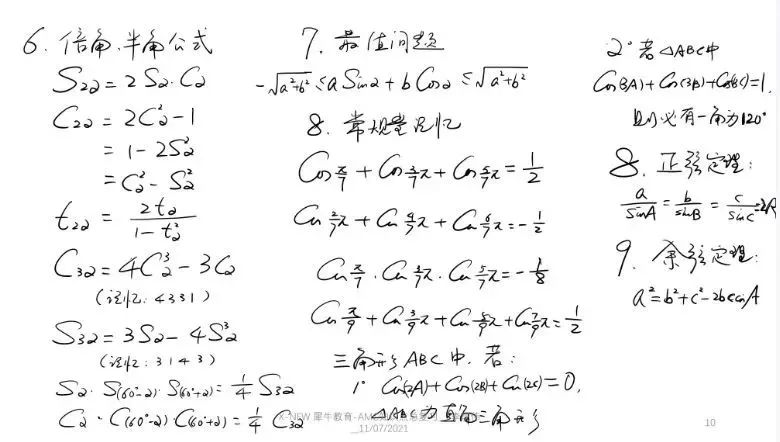 6. 倍角、半角公式
S2α = 2Sα·Cα
C2α = 2Cα²−1
= 1−2Sα²
= Cα²−Sα²
t2α = 2tα/(1−tα²)
C3α = 4Cα³−3Cα
(记忆:4331)
S3α = 3Sα−4Sα³
(记忆:3143)
Sα·S(60°−α)·S(60°+α) = 1/4 S3α
Cα·C(60°−α)C(60°+α) = 1/4 C3α
7. 最值问题
−√(a²+b²) ≤ a Sinα + b Cosα ≤ √(a²+b²)
8. 常规量记忆
Cos π/7 + Cos 3/7π + Cos 5/7π = 1/2
Cos 2/7π + Cos 4/7π + Cos 6/7π = −1/2
Cos π/7 · Cos 3/7π · Cos 5/7π = −1/8
Cos π/9 + Cos 3/9π + Cos 5/9π + Cos 7/9π = 1/2
三角形ABC中,若:
1° Cos(2A)+Cos(2B)+Cos(2C)=0,
△ABC为直角三角形
2° 若△ABC中
Cos(3A)+Cos(3B)+Cos(3C)=1,
则必有一角为120°
8. 正弦定理:
a/sinA = b/sinB = c/sinC = 2R
9. 余弦定理:
a²=b²+c²−2bccosA
X-NEW 犀牛教育-AM
11/07/2021
10